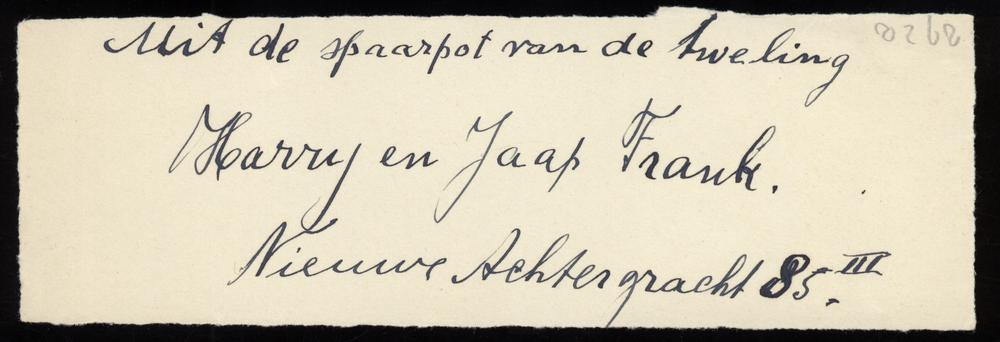 Uit de spaarpot van de tweling
Harry en Jaap Frank.
Nieuwe Achtergracht 85. III